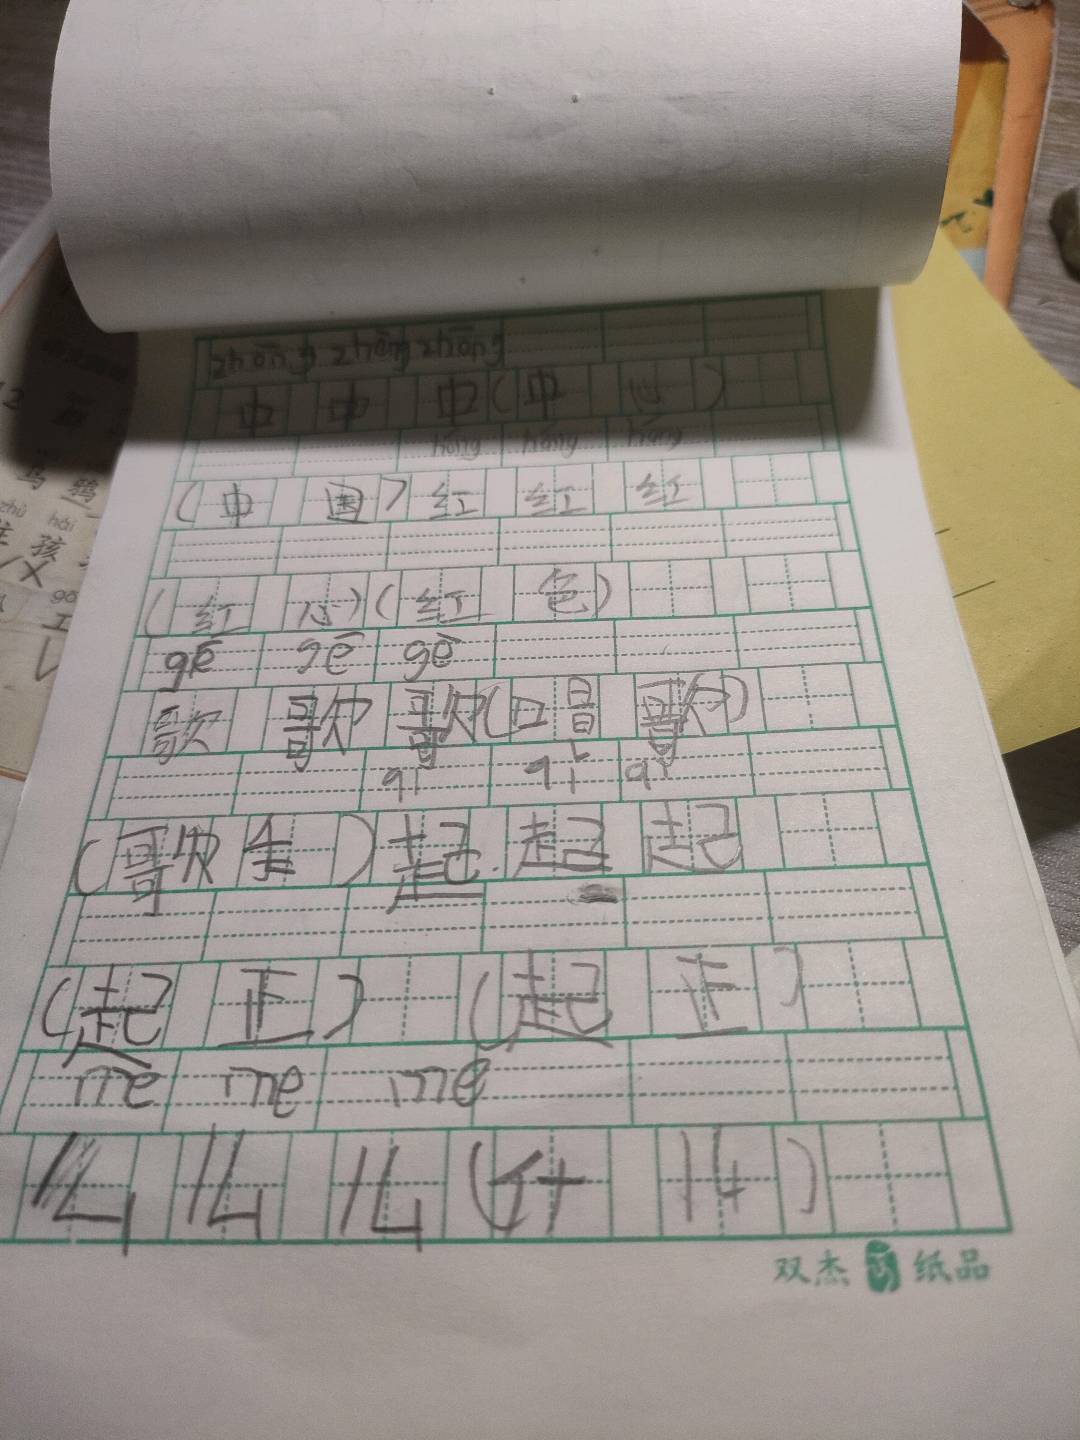 zhōng zhōng zhōng
中 中 中 (中 心)
hóng hóng hóng
(中 国) 红 红 红
(红 心) (红 色)
gē gē gē
歌 歌 歌 (唱 歌)
qǐ qǐ qǐ
起 起 起
(起 正) (起 正)
me me me
双杰 纸品
孩
hái
zhù